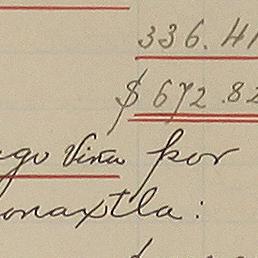 336.41
$ 672.82
ago Viña por
onaxtla: